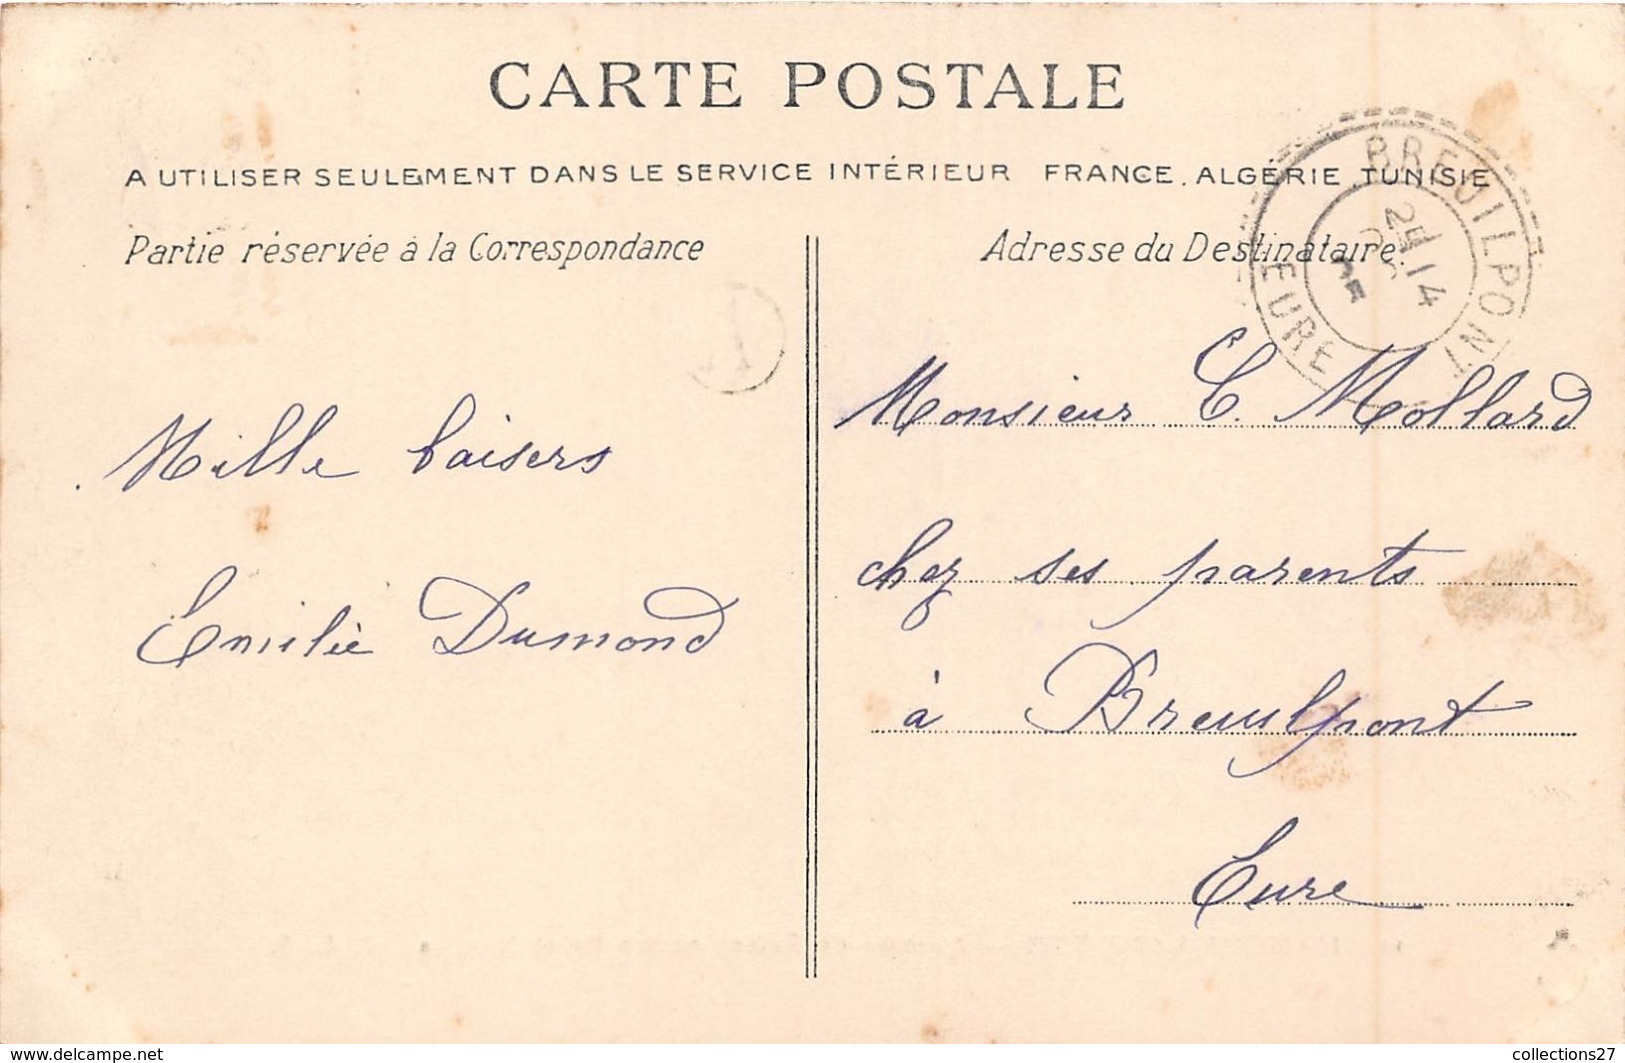 CARTE POSTALE
A UTILISER SEULEMENT DANS LE SERVICE INTÉRIEUR FRANCE. ALGÉRIE TUNISIE
Partie réservée à la Correspondance
Adresse du Destinataire.
BREUILPONT
EURE
Mille baisers
Emilie Dumond
Monsieur C. Mollard
chez ses parents
à Breuilpont
Eure
www.delcampe.net
collections27